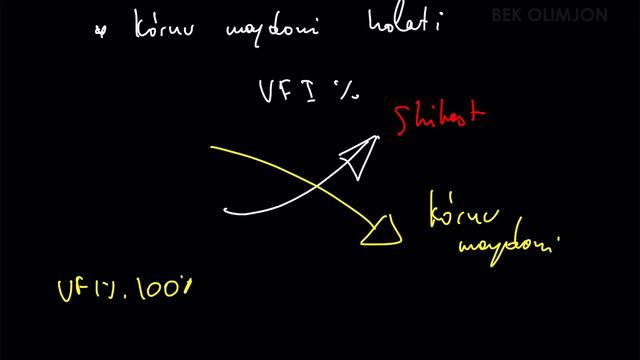 BEK OLIMJON
* Kóruv maydoni holati
VFI %
Shikast
Kóruv
maydoni
VFI%. 100%